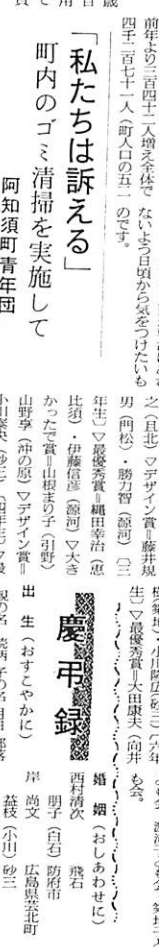 前年より三百四十二人増え全体で
四千二百七十一人（町人口の五一
ないよう日頃から気をつけたいも
のです。
「私たちは訴える」
町内のゴミ清掃を実施して
阿知須町青年団
之（且北）▽デザイン賞＝藤井規
男（門松）・勝力智（源河）〔三
年生〕▽最優秀賞＝縄田幸治（恵
比須）・伊藤信彦（源河）▽大き
かったで賞＝山根まり子（引野）
山野享（沖の原）▽デザイン賞＝
生〕▽最優秀賞＝大田康夫（向井
も会。
慶弔録
出生（おすこやかに）
婚姻（おしあわせに）
西村清次　飛石
朋子（白石）防府市
岸　尚文　広島県芸北町
益枝（小川）砂三